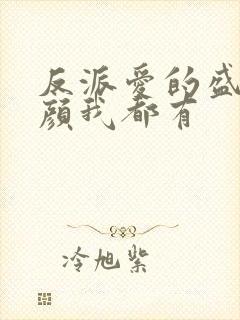 反派爱的盛
颜我都有
冷旭紫